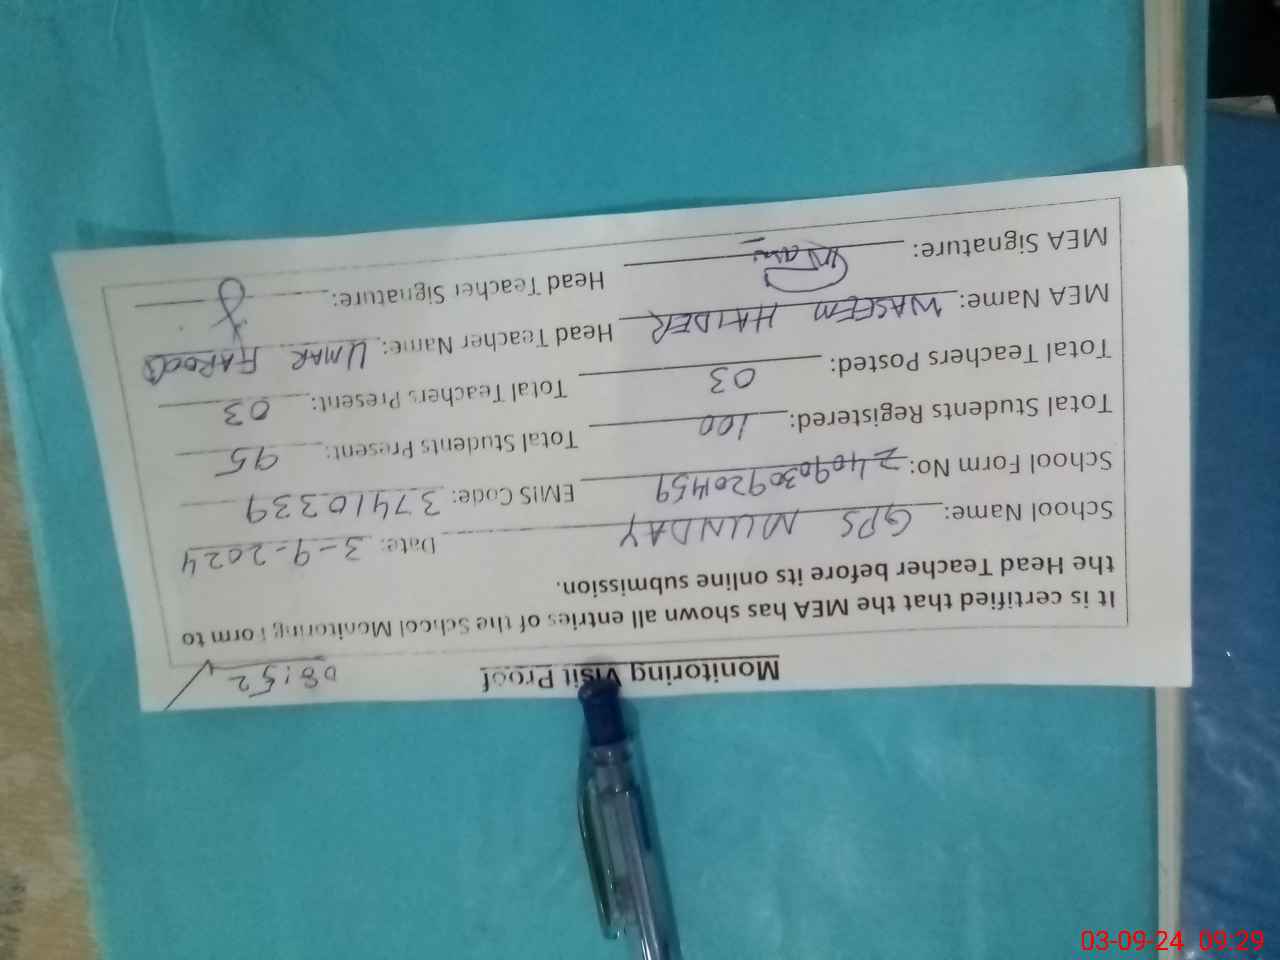 Monitoring Visit Proof 08:52
It is certified that the MEA has shown all entries of the School Monitoring Form to
the Head Teacher before its online submission.
School Name: GPS MUNDAY Date: 3-9-2024
School Form No: 2409030920459 EMIS Code: 37410339
Total Students Registered: 100 Total Students Present: 95
Total Teachers Posted: 03 Total Teachers Present: 03
MEA Name: WASEEM HAIDER Head Teacher Name: UMAR FAROOQ
MEA Signature: Head Teacher Signature:
03-09-24 09:29